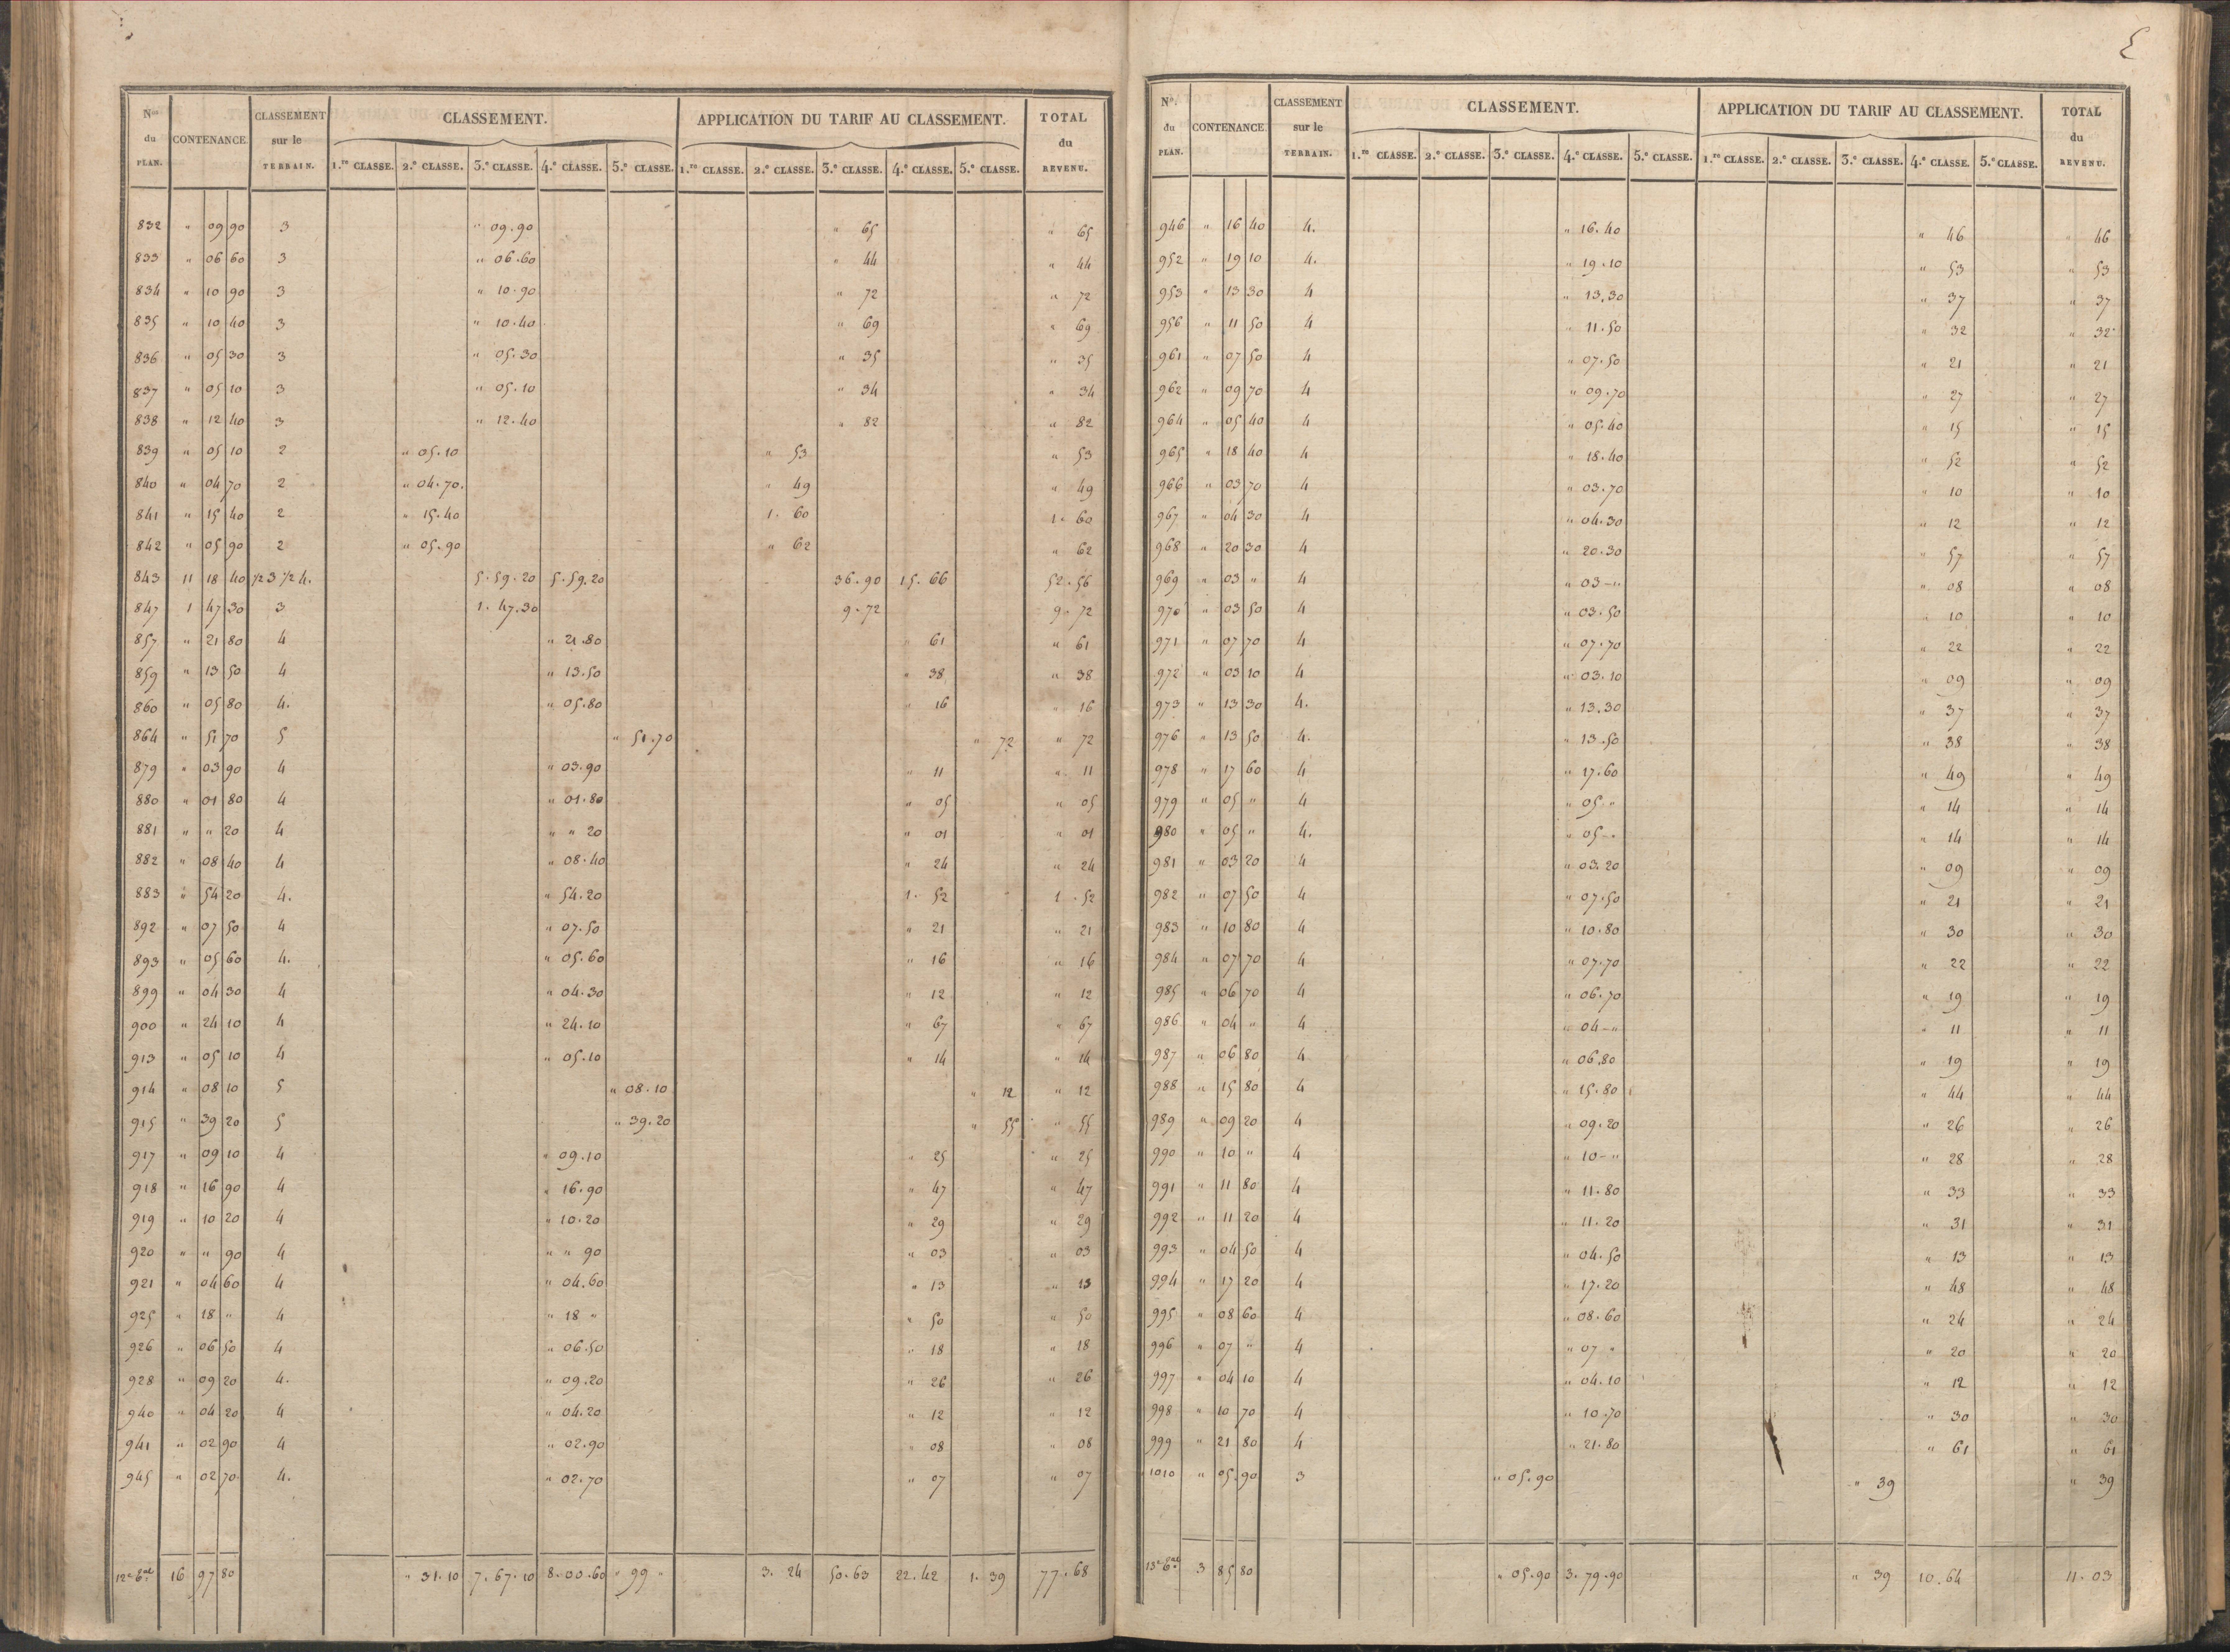 Nos du PLAN. CONTENANCE. CLASSEMENT sur le TERRAIN. CLASSEMENT. APPLICATION DU TARIF AU CLASSEMENT. TOTAL du REVENU.
1.re CLASSE. 2.e CLASSE. 3.e CLASSE. 4.e CLASSE. 5.e CLASSE. 1.re CLASSE. 2.e CLASSE. 3.e CLASSE. 4.e CLASSE. 5.e CLASSE.
832 " 09 90 3 " 09.90 " 65 " 65
833 " 06 60 3 " 06.60 " 44 " 44
834 " 10 90 3 " 10.90 " 72 " 72
835 " 10 40 3 " 10.40 " 69 " 69
836 " 05 30 3 " 05.30 " 35 " 35
837 " 05 10 3 " 05.10 " 34 " 34
838 " 12 40 3 " 12.40 " 82 " 82
839 " 05 10 2 " 05.10 " 53 " 53
840 " 04 70 2 " 04.70. " 49 " 49
841 " 15 40 2 " 15.40 1. 60 1. 60
842 " 05 90 2 " 05.90 " 62 " 62
843 11 18 40 1/2 3 1/2 4. 5.59.20 5.59.20 36.90 15.66 52.56
847 1 47 30 3 1.47.30 9.72 9.72
857 " 21 80 4 " 21.80 " 61 " 61
859 " 13 50 4 " 13.50 " 38 " 38
860 " 05 80 4. " 05.80 " 16 " 16
864 " 51 70 5 " 51.70 " 72 " 72
879 " 03 90 4 " 03.90 " 11 " 11
880 " 01 80 4 " 01.80 " 05 " 05
881 " " 20 4 " " 20 " 01 " 01
882 " 08 40 4 " 08.40 " 24 " 24
883 " 54 20 4. " 54.20 1. 52 1.52
892 " 07 50 4 " 07.50 " 21 " 21
893 " 05 60 4. " 05.60 " 16 " 16
899 " 04 30 4 " 04.30 " 12 " 12
900 " 24 10 4 " 24.10 " 67 " 67
913 " 05 10 4 " 05.10 " 14 " 14
914 " 08 10 5 " 08.10 " 12 " 12
915 " 39 20 5 " 39.20 " 55 " 55
917 " 09 10 4 " 09.10 " 25 " 25
918 " 16 90 4 " 16.90 " 47 " 47
919 " 10 20 4 " 10.20 " 29 " 29
920 " " 90 4 " " 90 " 03 " 03
921 " 04 60 4 " 04.60 " 13 " 13
925 " 18 " 4 " 18 " " 50 " 50
926 " 06 50 4 " 06.50 " 18 " 18
928 " 09 20 4. " 09.20 " 26 " 26
940 " 04 20 4 " 04.20 " 12 " 12
941 " 02 90 4 " 02.90 " 08 " 08
945 " 02 70 4. " 02.70 " 07 " 07
16 97 80 " 31.10 7.67.10 8.00.60 " 99 " 3. 24 50.63 22.42 1. 39 77.68
Nos du PLAN. CONTENANCE. CLASSEMENT sur le TERRAIN. CLASSEMENT. APPLICATION DU TARIF AU CLASSEMENT. TOTAL du REVENU.
1.re CLASSE. 2.e CLASSE. 3.e CLASSE. 4.e CLASSE. 5.e CLASSE. 1.re CLASSE. 2.e CLASSE. 3.e CLASSE. 4.e CLASSE. 5.e CLASSE.
946 " 16 40 4. " 16.40 " 46 " 46
952 " 19 10 4. " 19.10 " 53 " 53
953 " 13 30 4 " 13.30 " 37 " 37
956 " 11 50 4 " 11.50 " 32 " 32
961 " 07 50 4 " 07.50 " 21 " 21
962 " 09 70 4 " 09.70 " 27 " 27
964 " 05 40 4 " 05.40 " 15 " 15
965 " 18 40 4 " 18.40 " 52 " 52
966 " 03 70 4 " 03.70 " 10 " 10
967 " 04 30 4 " 04.30 " 12 " 12
968 " 20 30 4 " 20.30 " 57 " 57
969 " 03 " 4 " 03-" " 08 " 08
970 " 03 50 4 " 03.50 " 10 " 10
971 " 07 70 4 " 07.70 " 22 " 22
972 " 03 10 4 " 03.10 " 09 " 09
973 " 13 30 4. " 13.30 " 37 " 37
976 " 13 50 4. " 13.50 " 38 " 38
978 " 17 60 4 " 17.60 " 49 " 49
979 " 05 " 4 " 05 " " 14 " 14
980 " 05 " 4. " 05-" " 14 " 14
981 " 03 20 4 " 03.20 " 09 " 09
982 " 07 50 4 " 07.50 " 21 " 21
983 " 10 80 4 " 10.80 " 30 " 30
984 " 07 70 4 " 07.70 " 22 " 22
985 " 06 70 4 " 06.70 " 19 " 19
986 " 04 " 4 " 04-" " 11 " 11
987 " 06 80 4 " 06.80 " 19 " 19
988 " 15 80 4 " 15.80 " 44 " 44
989 " 09 20 4 " 09.20 " 26 " 26
990 " 10 " 4 " 10-" " 28 " 28
991 " 11 80 4 " 11.80 " 33 " 33
992 " 11 20 4 " 11.20 " 31 " 31
993 " 04 50 4 " 04.50 " 13 " 13
994 " 17 20 4 " 17.20 " 48 " 48
995 " 08 60 4 " 08.60 " 24 " 24
996 " 07 " 4 " 07 " " 20 " 20
997 " 04 10 4 " 04.10 " 12 " 12
998 " 10 70 4 " 10.70 " 30 " 30
999 " 21 80 4 " 21.80 " 61 " 61
1010 " 05 90 3 " 05.90 " 39 " 39
3 85 80 " 05.90 3.79.90 " 39 10.64 11.03